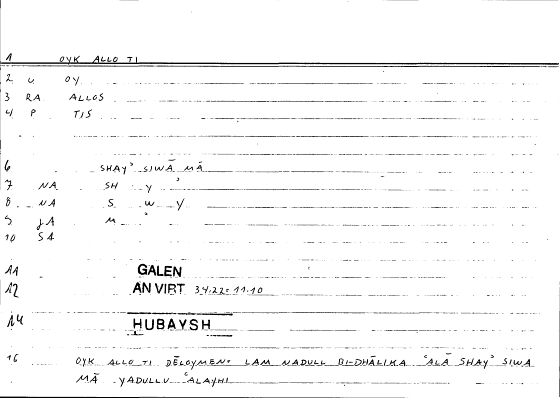 1 OYK ALLO TI
2 U OY
3 RA ALLOS
4 P TIS
6 SHAYʾ SIWĀ MĀ
7 NA SH Y ʾ
8 NA S W Y
9 JA M ʾ
10 SA
11 GALEN
12 AN VIRT 34.22= 11.10
14 HUBAYSH
16 OYK ALLO TI DĒLOYMEN: LAM NADULL BI-DHĀLIKA ʿALĀ SHAYʾ SIWĀ
MĀ YADULLU ʿALAYHI